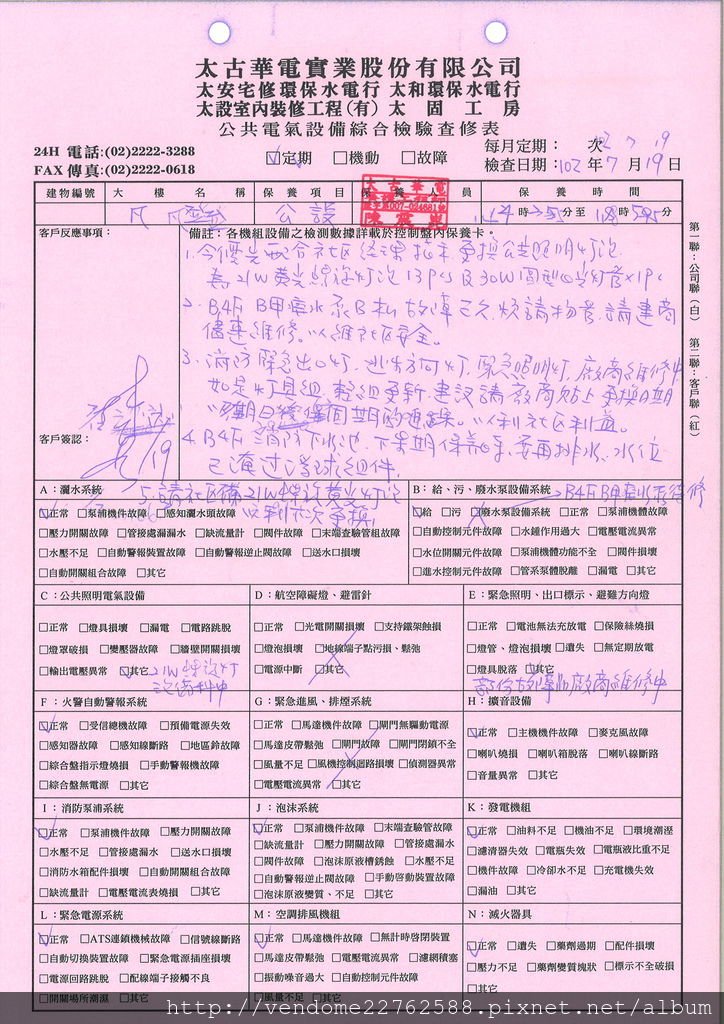 太古華電實業股份有限公司
太安宅修環保水電行 太和環保水電行
太設室內裝修工程(有) 太固工房
公共電氣設備綜合檢驗查修表
24H 電話:(02)2222-3288
FAX 傳真:(02)2222-0618
☑定期 □機動 □故障
每月定期： 次 102 7 19
檢查日期:102年7月19日
建物編號 大樓名稱 凡 保養項目 公設 保養人員 保養時間 時 分至 時 分
太古華電
007-024681
陳震
客戶反應事項：
備註：各機組設備之檢測數據詳載於控制盤內保養卡。
1.今優先配合社區 更換公共照明灯泡
為21W黃光螺旋灯泡13PCS及30W圓型 灯管x1PC
2.B4F B甲 水泵B机故障已久,煩請物管請建商
儘速維修。以維社區安全。
3.消防緊急出口灯,逃生方向灯,緊急照明灯,廠商維修中
如是灯具組整組更新建議請廠商貼上更換日期
以 保固期 。以利社区利益。
4.B4F消防下水池,下半期保養 要再排水,水位
已淹过浮球組件.
5.請社区備21W螺旋黃光灯泡
以利下次更換!
客戶簽認：
7/19
第一聯：公司聯（白） 第二聯：客戶聯（紅）
A：灑水系統
☑正常 □泵浦機件故障 □感知灑水頭故障
□壓力開關故障 □管接處漏漏水 □缺流量計 □閥件故障 □末端查驗管組故障
□水壓不足 □自動警報裝置故障 □自動警報逆止閥故障 □送水口損壞
□自動開關組合故障 □其它
B：給、污、廢水泵設備系統 B4F B甲 水泵待修
☑給 □污 ☑廢水泵設備系統 □正常 □泵浦機體故障
□自動控制元件故障 □水錘作用過大 □電壓電流異常
□水位開關元件故障 □泵浦機體功能不全 □閥件損壞
□進水控制元件故障 □管系泵體脫離 □漏電 □其它
C：公共照明電氣設備
□正常 □燈具損壞 □漏電 □電路跳脫
□燈罩破損 □變壓器故障 □牆壁開關損壞
□輸出電壓異常 ☑其它 21W螺旋灯
泡備料中
D：航空障礙燈、避雷針
□正常 □光電開關損壞 □支持鐵架蝕損
□燈泡損壞 □地線端子點污損、鬆弛
□電源中斷 □其它
E：緊急照明、出口標示、避難方向燈
□正常 □電池無法充放電 □保險絲燒損
□燈管、燈泡損壞 □遺失 □無定期放電
□燈具脫落 ☑其它
部份故障 廠商維修中
F：火警自動警報系統
☑正常 □受信總機故障 □預備電源失效
□感知器故障 □感知線斷路 □地區鈴故障
□綜合盤指示燈燒損 □手動警報機故障
□綜合盤無電源 □其它
G：緊急進風、排煙系統
□正常 □馬達機件故障 □閘門無驅動電源
□馬達皮帶鬆弛 □閘門故障 □閘門閉鎖不全
□風量不足 □風機控制迴路損壞 □偵測器異常
□電壓電流異常 □其它
H：擴音設備
☑正常 □主機機件故障 □麥克風故障
□喇叭燒損 □喇叭箱脫落 □喇叭線斷路
□音量異常 □其它
I：消防泵浦系統
☑正常 □泵浦機件故障 □壓力開關故障
□水壓不足 □管接處漏水 □送水口損壞
□消防水箱配件損壞 □自動開關組合故障
□缺流量計 □電壓電流表燒損 □其它
J：泡沫系統
☑正常 □泵浦機件故障 □末端查驗管故障
□缺流量計 □壓力開關故障 □管接處漏水
□閥件故障 □泡沫原液槽銹蝕 □水壓不足
□自動警報逆止閥故障 □手動啓動裝置故障
□泡沫原液變質、不足 □其它
K：發電機組
☑正常 □油料不足 □機油不足 □環境潮溼
□濾清器失效 □電瓶失效 □電瓶液比重不足
□機件故障 □冷卻水不足 □充電機失效
□漏油 □其它
L：緊急電源系統
☑正常 □ATS連鎖機械故障 □信號線斷路
□自動切換裝置故障 □緊急電源插座損壞
□電源回路跳脫 □配線端子接觸不良
□開關場所潮溼 □其它
M：空調排風機組
☑正常 □馬達機件故障 □無計時啓閉裝置
□馬達皮帶鬆弛 □電壓電流異常 □濾網積塵
□振動噪音過大 □自動控制元件故障
□風量不足 □其它
N：滅火器具
☑正常 □遺失 □藥劑過期 □配件損壞
□壓力不足 □藥劑變質塊狀 □標示不全破損
□其它
http://vendome22762588.pixnet.net/album